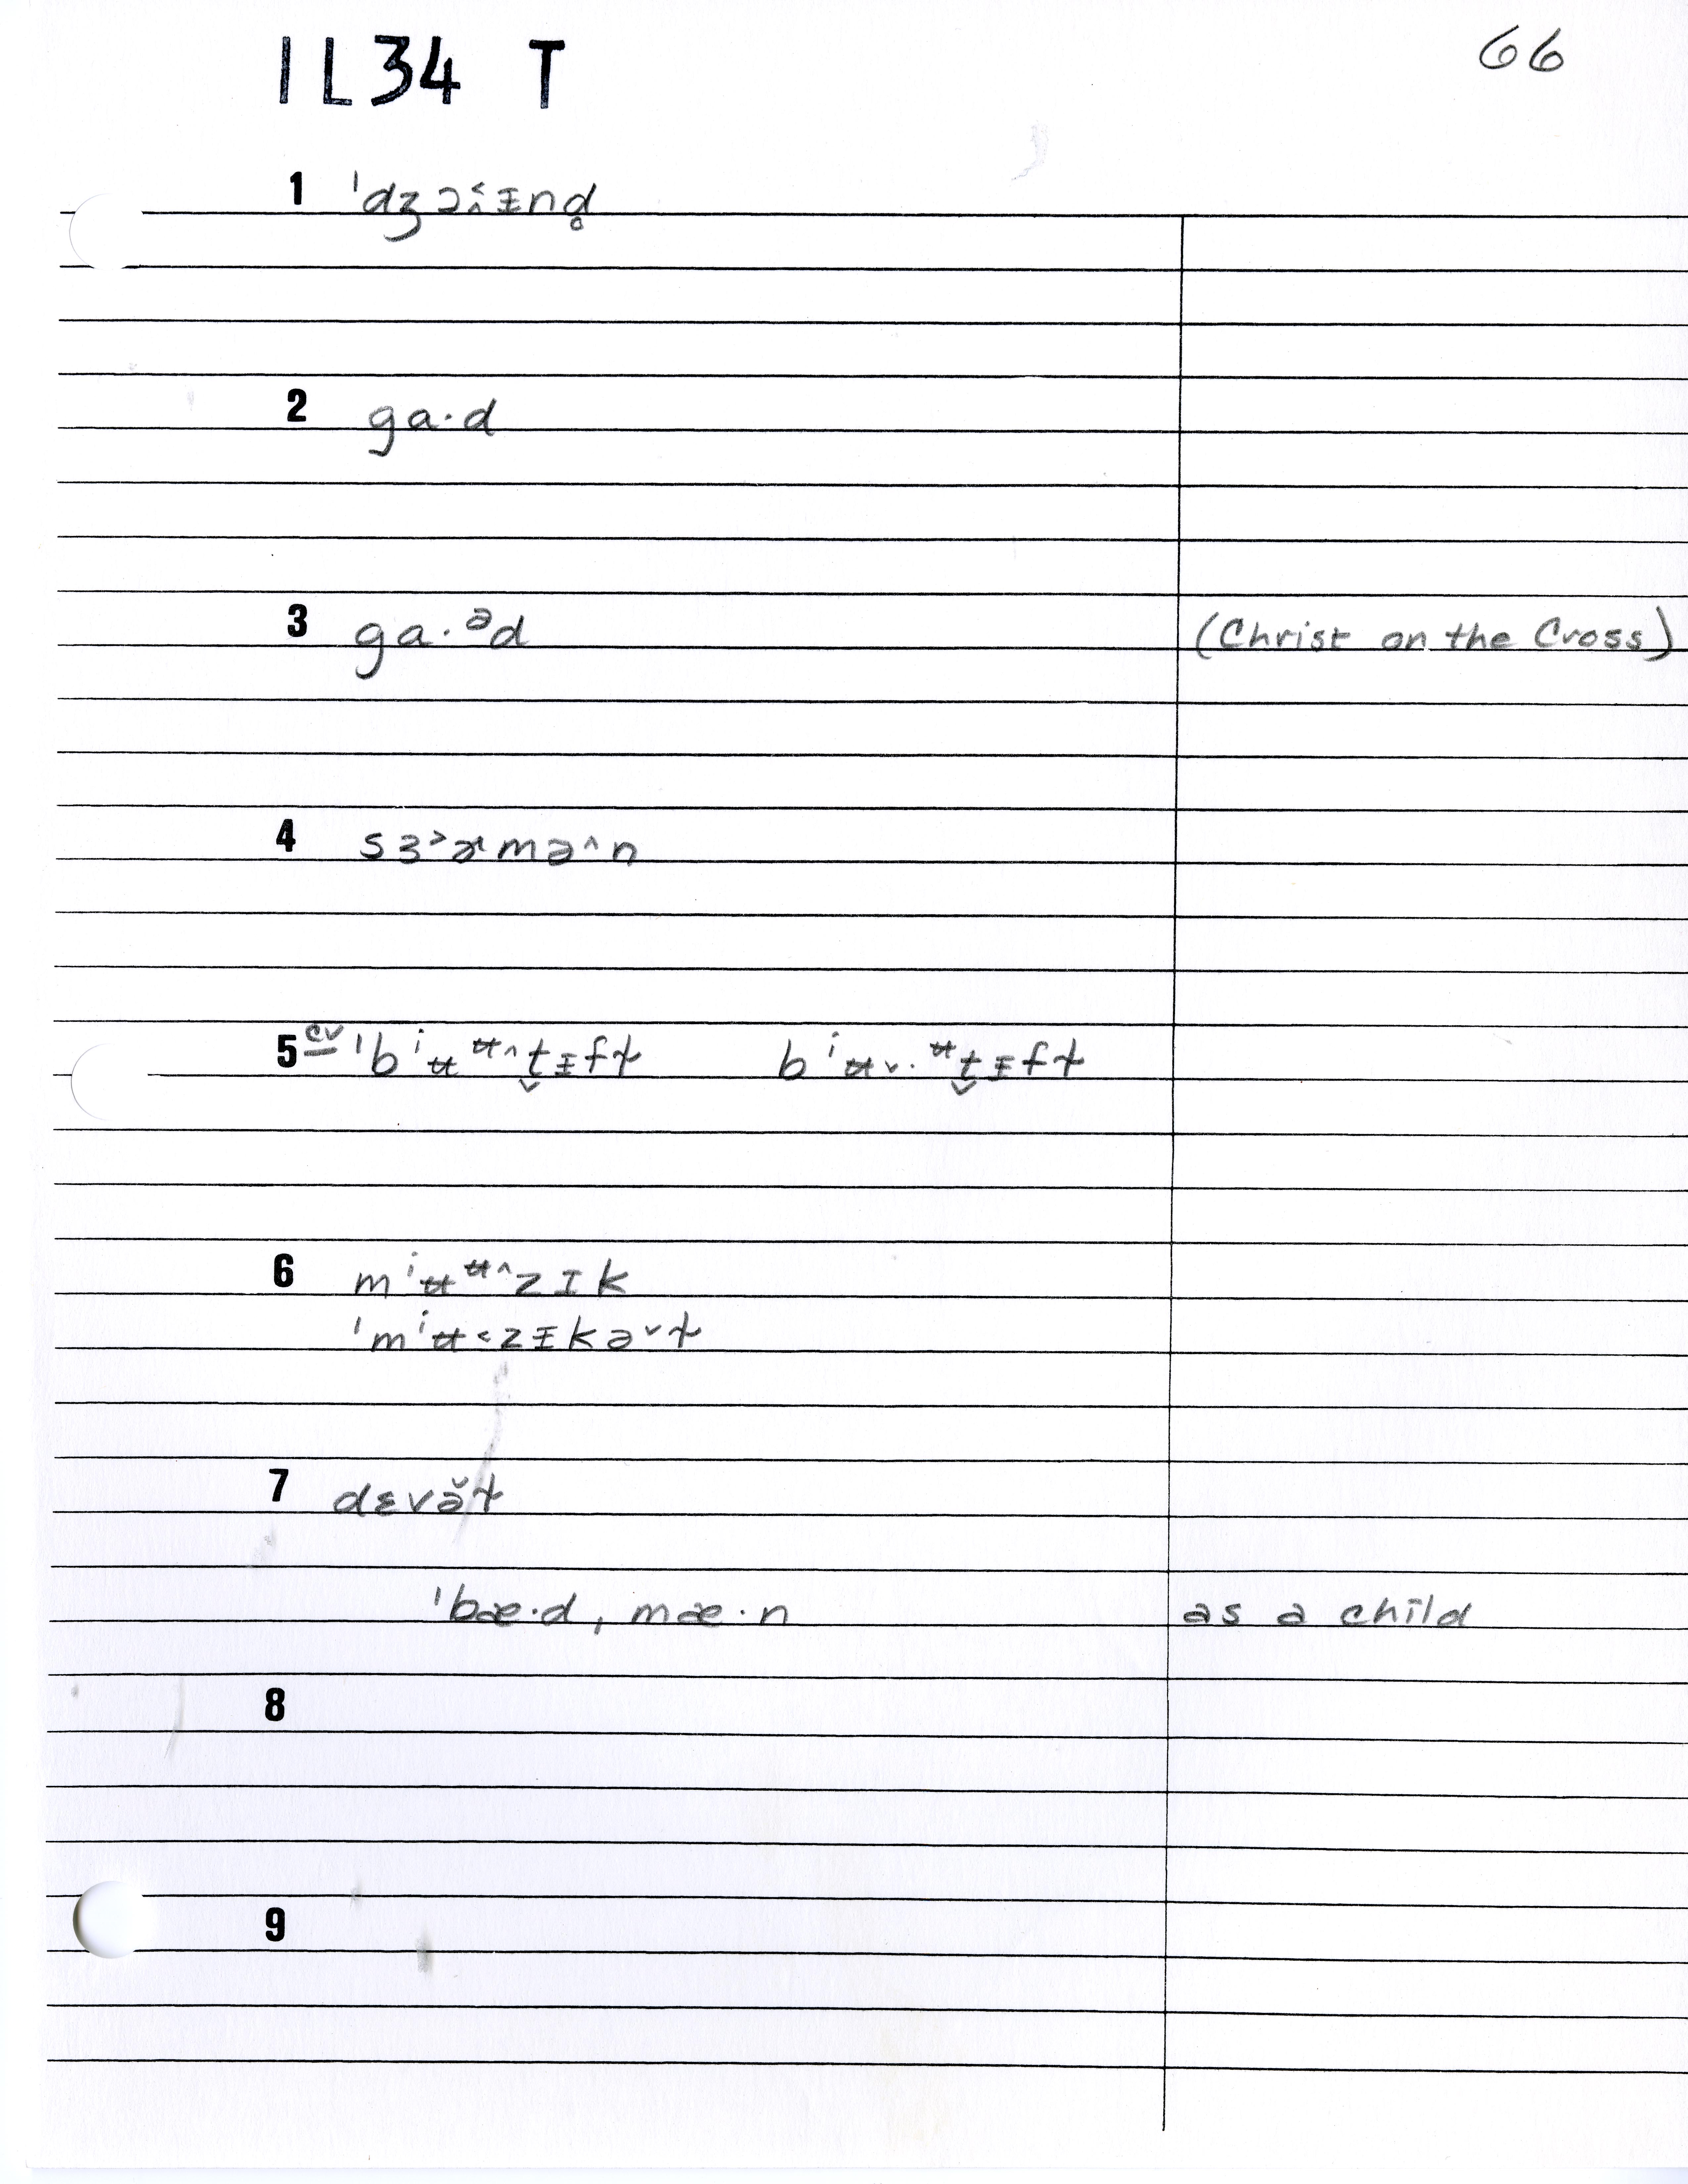 IL34 T 66
1 ˈdʒɔ˂˄ᵻnd̥
2 ga·d
3 ga·ᵊd (Christ on the Cross)
4 sɜ˃ɚmə˄n
5 cv ˈbⁱʉᶶ˄t̬ᵻfɫ bⁱʉ˅·ᶶt̬ᵻfɫ
6 mⁱʉᶶ˄zɪk
ˈmⁱʉ˂zᵻkə˅ɫ
7 dɛvə̌ɫ
ˈbæ·d, mæ·n as a child
8
9